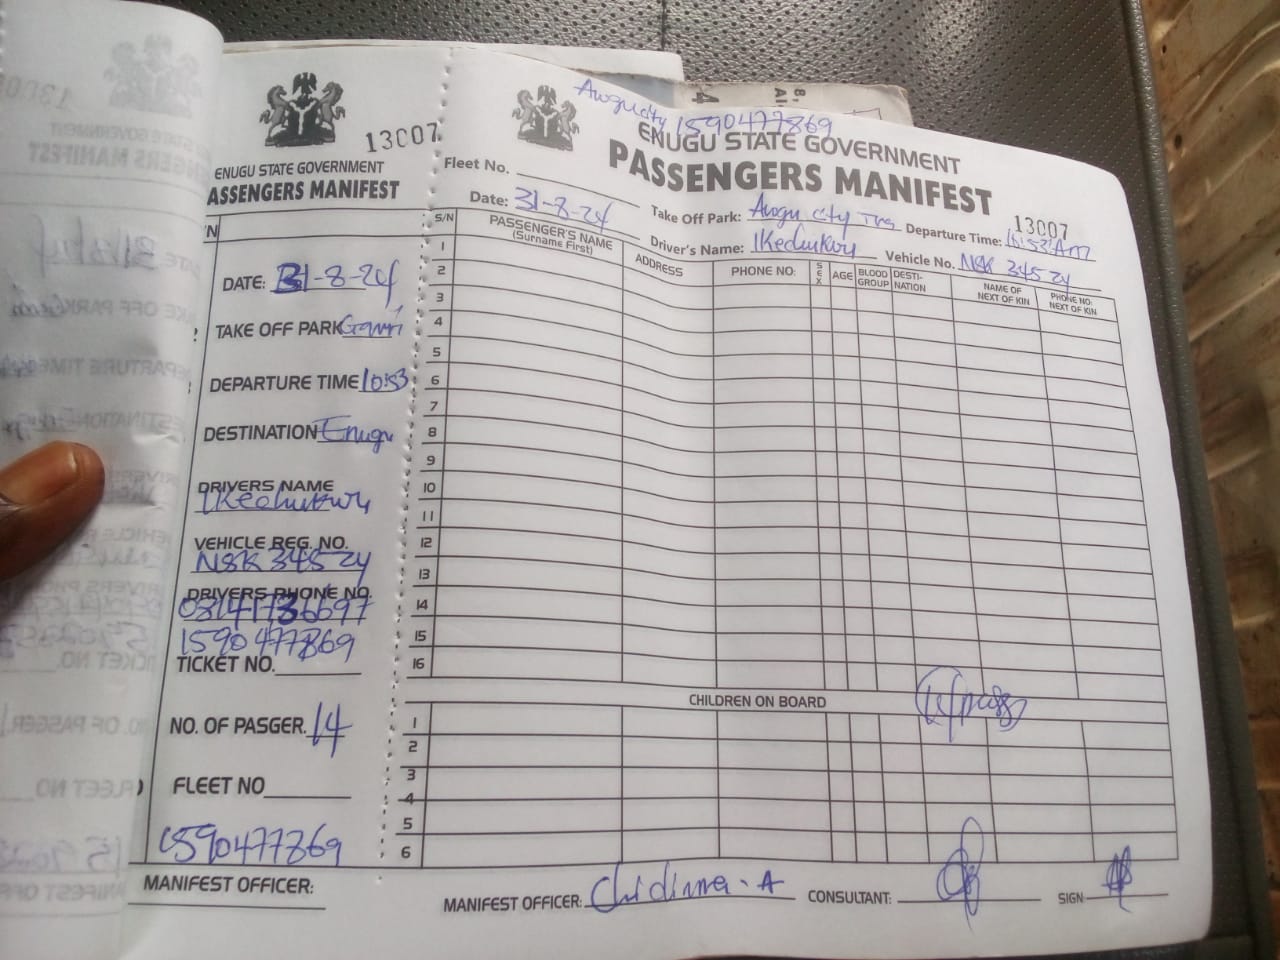 13007
ENUGU STATE GOVERNMENT
ASSENGERS MANIFEST
/N
DATE: 31-8-24
TAKE OFF PARK
DEPARTURE TIME 10:53
DESTINATION Enugu
DRIVERS NAME
Ikechukwu
VEHICLE REG. NO.
NSK 345 ZY
DRIVERS PHONE NO.
1590477869
TICKET NO.
NO. OF PASGER. 14
FLEET NO
1590477869
MANIFEST OFFICER:
Awgu city 1590477869
ENUGU STATE GOVERNMENT
PASSENGERS MANIFEST
13007
Fleet No.
Date: 31-8-24 Take Off Park: Awgu city Departure Time: 10:53 Am
Driver's Name: Ikechukwu Vehicle No. NSK 345 ZY
S/N PASSENGER'S NAME (Surname First) ADDRESS PHONE NO: SEX AGE BLOOD GROUP DESTI-NATION NAME OF NEXT OF KIN PHONE NO: NEXT OF KIN
1
2
3
4
5
6
7
8
9
10
11
12
13
14
15
16
CHILDREN ON BOARD
1
2
3
4
5
6
MANIFEST OFFICER: Chidinma - A CONSULTANT: SIGN